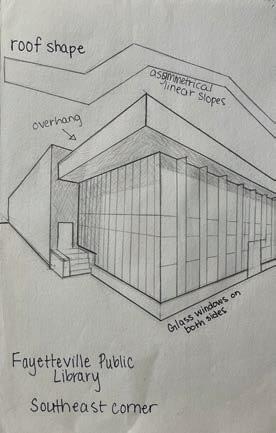 roof shape
asymmetrical
linear slopes
overhang
Glass windows on
both sides
Fayetteville Public
Library
Southeast corner